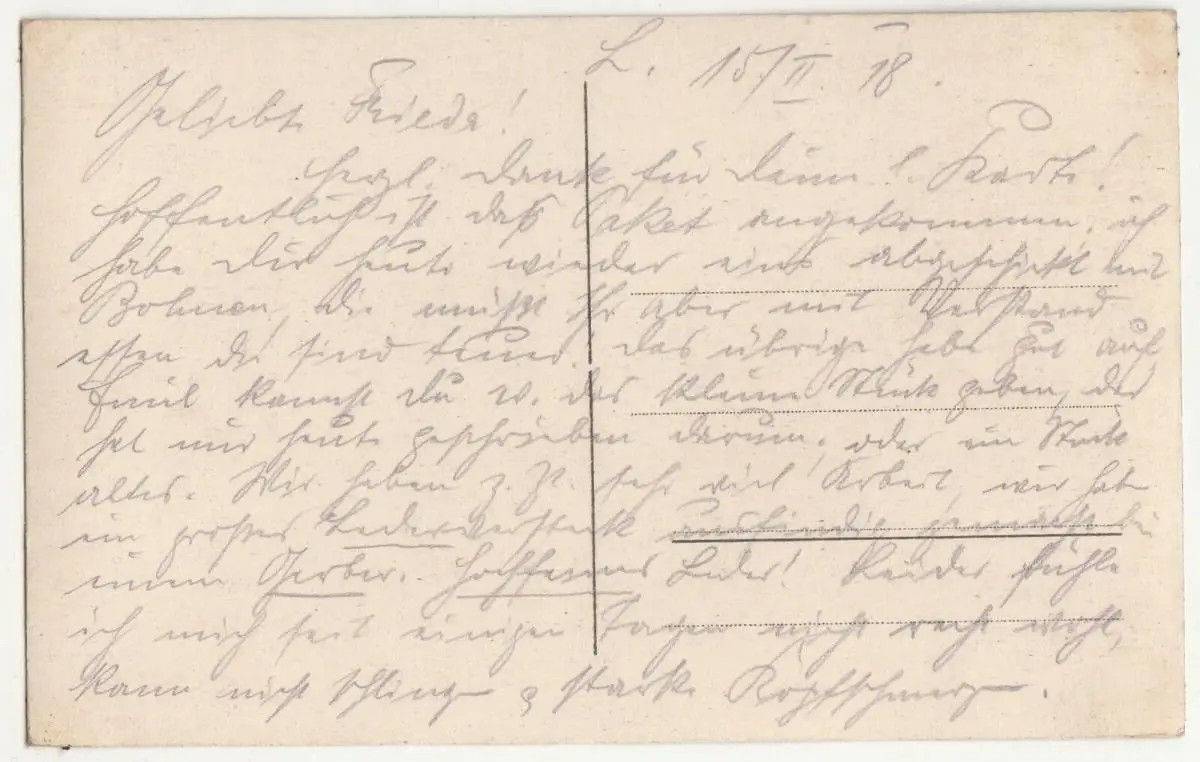 L. 15/II. 18.
Geliebte Frieda!
Herzl. Dank für Deine l. Karte!
Hoffentlich ist das Paket angekommen, ich
habe Dir heute wieder eins abgeschickt mit
Bohnen, die müßt Ihr aber mit Verstand
essen die sind teuer. Das übrige hebe gut auf,
Emil kannst du w. das kleine Stück geben, der
hat mir heute geschrieben darum, oder ein Stück
altes. Wir haben z. Zt. sehr viel Arbeit, wir habe
ein großes Lederversteck ausfindig gemacht bei
einem Gerber. Leder! Leider fühle
ich mich seit einigen Tagen nicht recht wohl,
kann nicht schlingen & starke Kopfschmerzen.